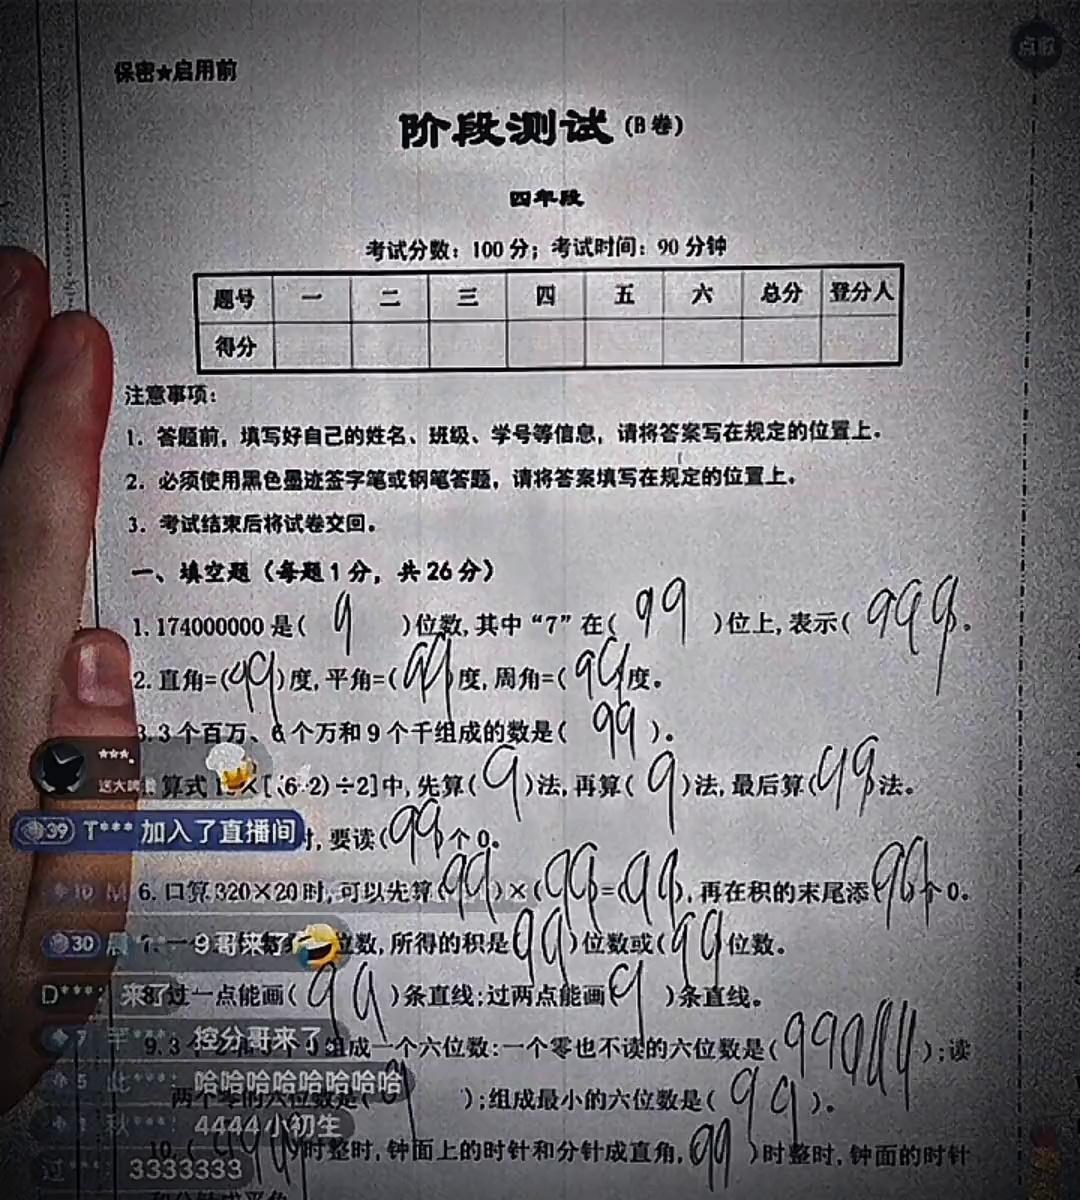 点歌
保密★启用前
阶段测试(B卷)
四年段
考试分数：100分；考试时间：90分钟
题号 一 二 三 四 五 六 总分 登分人
得分
注意事项：
1. 答题前，填写好自己的姓名、班级、学号等信息，请将答案写在规定的位置上。
2. 必须使用黑色墨迹签字笔或钢笔答题，请将答案填写在规定的位置上。
3. 考试结束后将试卷交回。
一、填空题（每题1分，共26分）
1. 174000000是( 9 )位数，其中“7”在( 99 )位上，表示( 999 。
2. 直角=(99)度，平角=(99)度，周角=(99度。
3. 3个百万、6个万和9个千组成的数是( 99 )。
算式 ×[(6-2)÷2]中，先算( 9 )法，再算( 9 )法，最后算(99 法。
***.
T*** 加入了直播间
39
，要读(99 个0。
6. 口算320×20时，可以先算(99)×(99)=(99)，再在积的末尾添(99个0。
30 晨***: 9哥来了
位数，所得的积是(99)位数或(99位数。
D***: 来了
8. 过一点能画( 99 )条直线；过两点能画(9 )条直线。
7 ***: 控分哥来了
9. 3 组成一个六位数：一个零也不读的六位数是( )；读
5 ***: 哈哈哈哈哈哈哈哈
两个零的六位数是(9 )；组成最小的六位数是( 99 )。
1 秋***: 4444小初生
10. ( )时整时，钟面上的时针和分针成直角，(99 )时整时，钟面的时针
过***: 3333333
和分针成平角